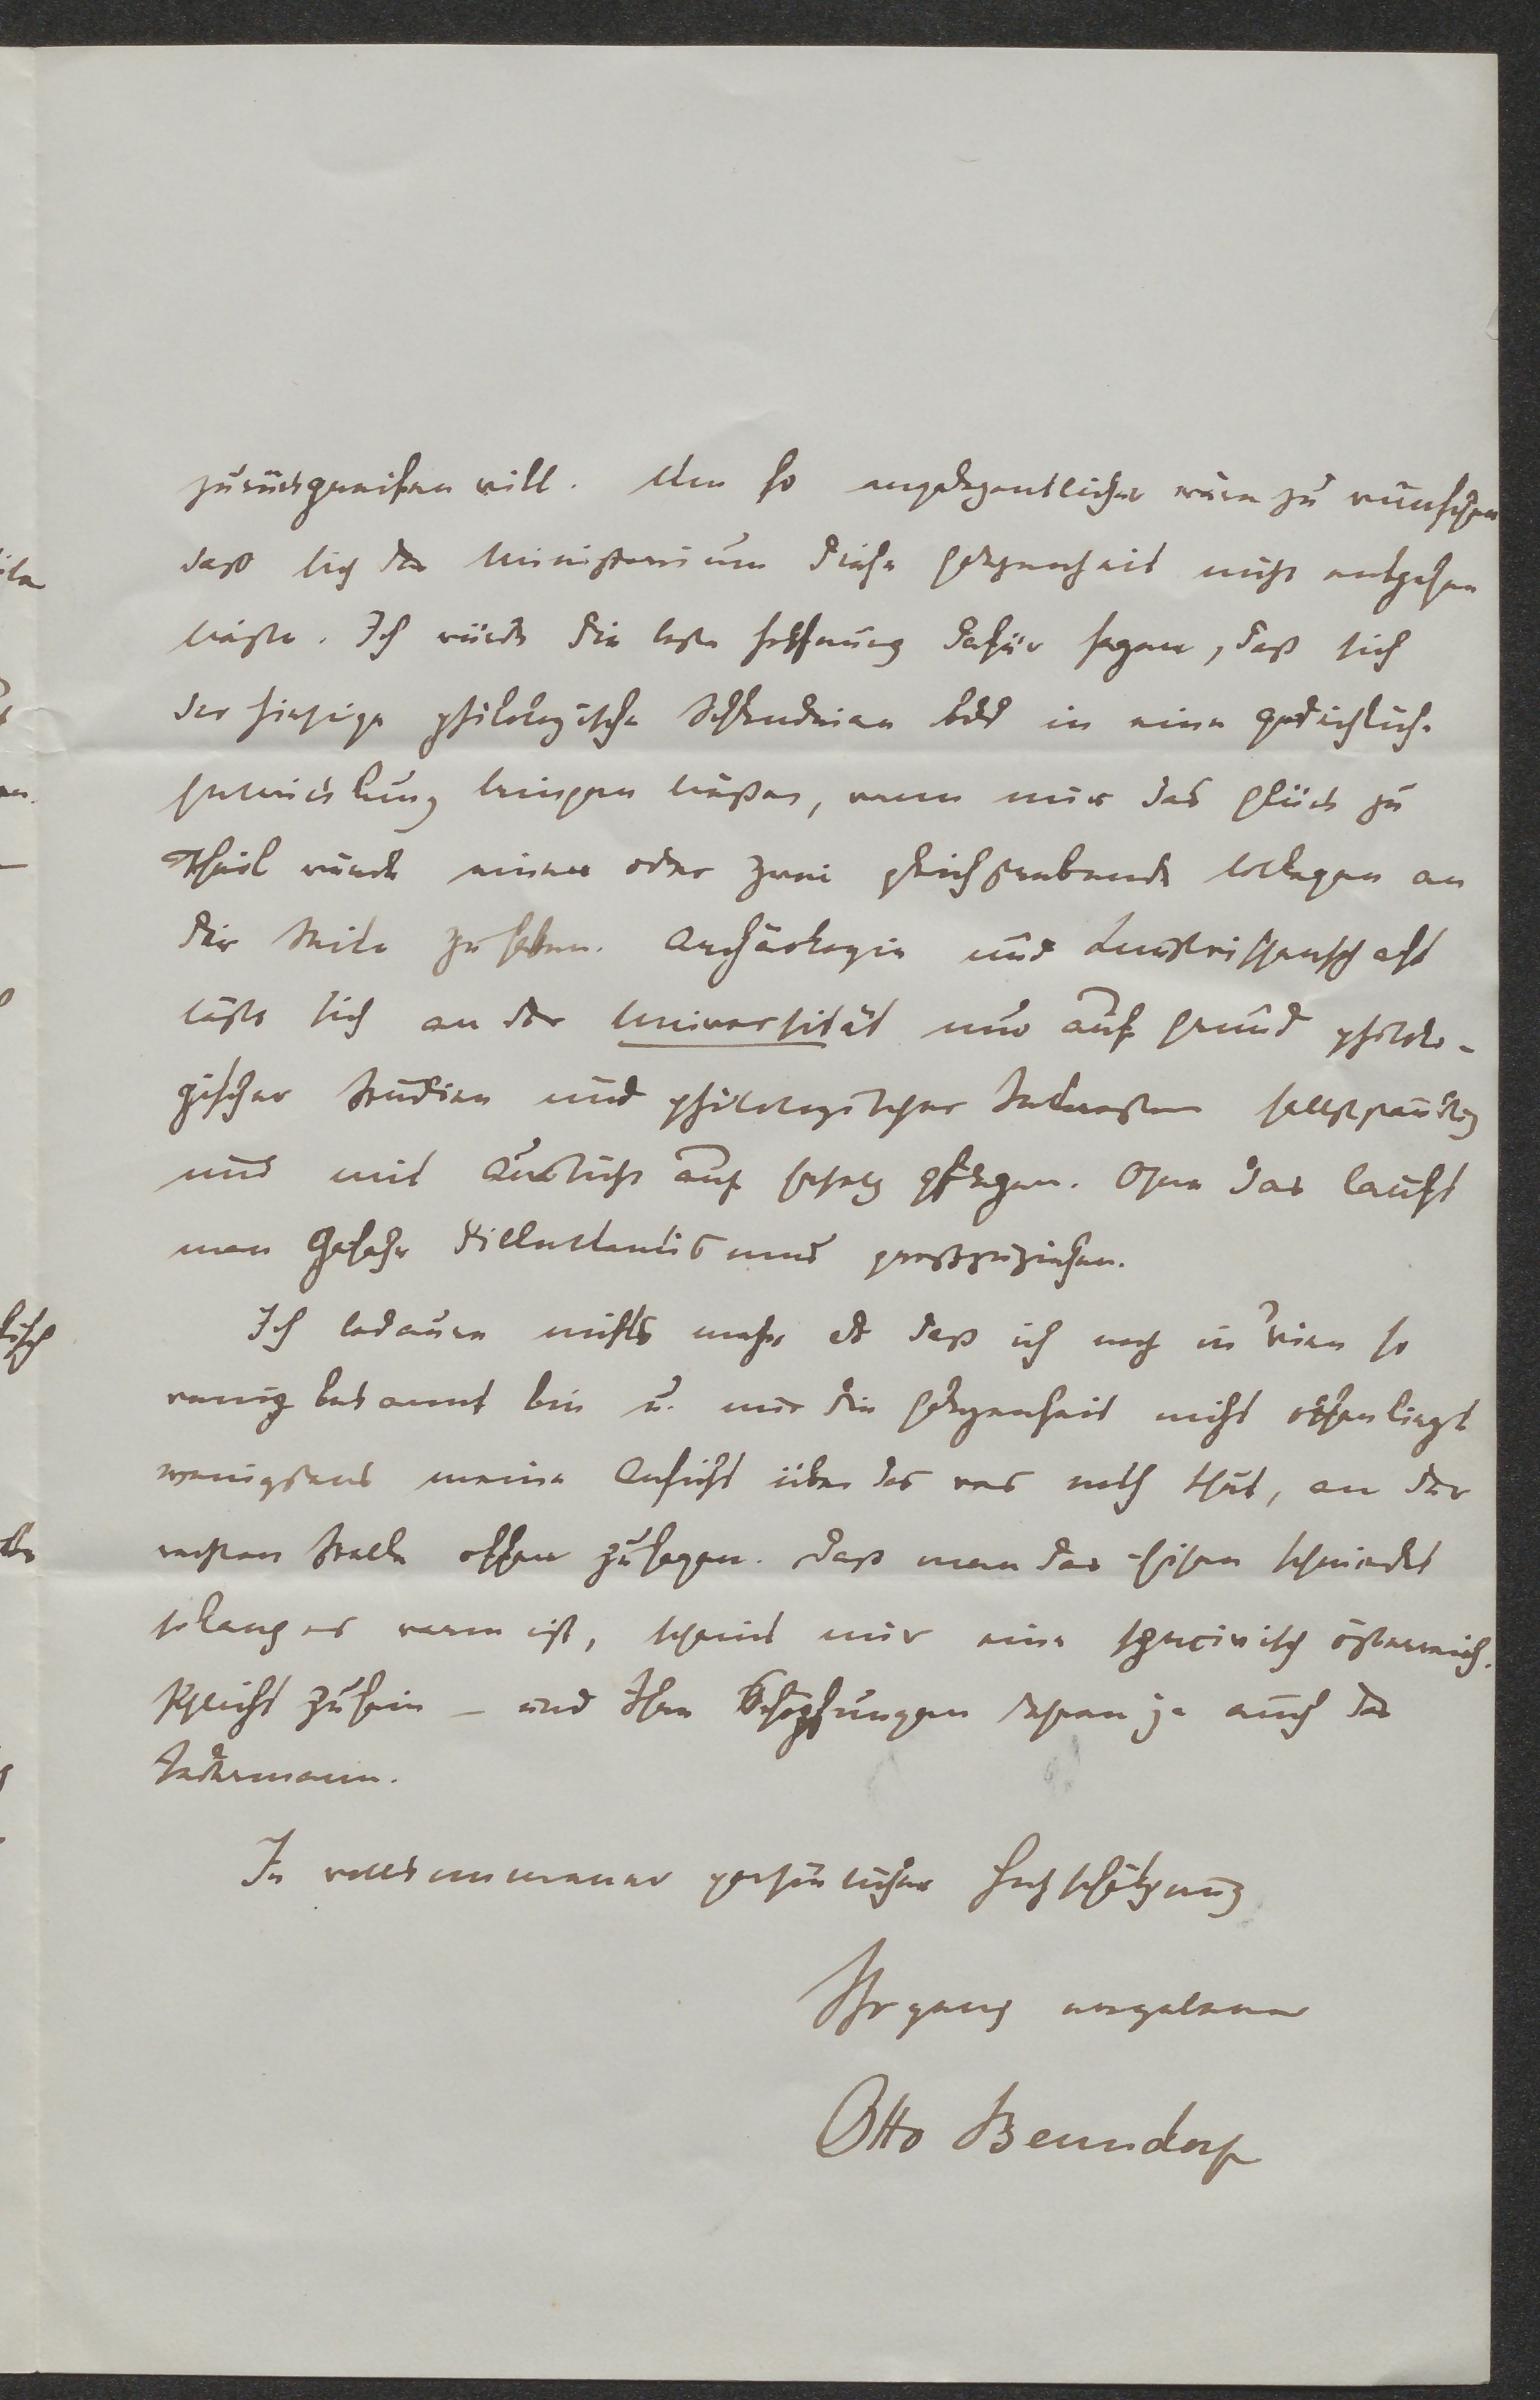 zurückgreifen will. Um so angelegentlicher wäre zu wünschen
daß sich das Ministerium diese Gelegenheit nicht entgehen
ließe. Ich würde die beste Hoffnung dafür hegen, daß sich
der hiesige philologische Schlendrian bald in eine gedeihliche
Entwicklung bringen ließe, wenn mir das Glück zu
Theil würde einen oder zwei gleichstrebende Collegen an
der Seite zu haben. Archäologie und Kunstwissenschaft
läßt sich an der Universität nur auf Grund philolo-
gischer Studien und philologischer Interessen selbstständig
und mit Aussicht auf Erfolg pflegen. Ohne das läuft
man Gefahr Dilettantismus großzuziehen.
Ich bedaure nichts mehr als daß ich noch in Wien so
wenig bekannt bin u. mir die Gelegenheit nicht offen liegt
wenigstens meine Ansicht über das was noth thut, an der
rechten Stelle offen zu sagen. Daß man das Eisen schmiedet
solang es warm ist, scheint mir eine specivisch österreich.
Pflicht zu sein – und Ihre Schöpfungen lehren ja auch das
Jedermann.
In vollkommener persönlicher Hochschätzung
Ihr ganz ergebener
Otto Benndorf